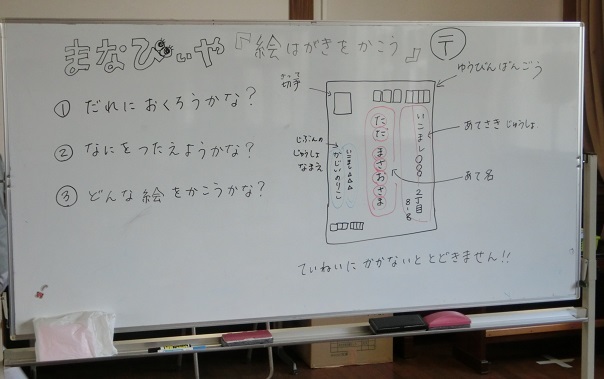 まなびぃや『絵はがきをかこう』
〒
① だれにおくろうかな?
② なにをつたえようかな?
③ どんな絵をかこうかな?
きって
切手
ゆうびんばんごう
いこまし〇〇〇 2丁目
8-8
あてさきじゅうしょ
ただまさおさま
あて名
じぶんの
じゅうしょ
なまえ
いこま△△△
かじいのりこ
ていねいにかかないととどきません!!